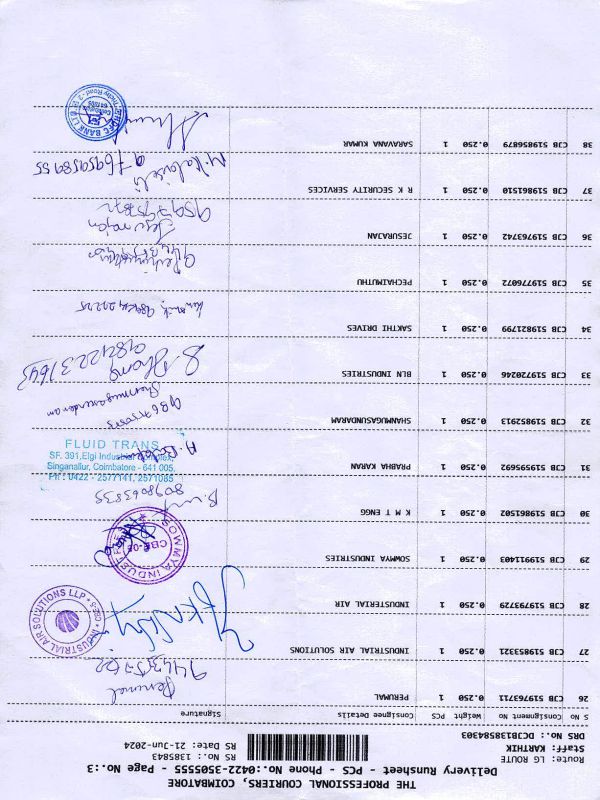 THE PROFESSIONAL COURIERS, COIMBATORE
Delivery Runsheet - PCS - Phone No.:0422-3505555 - Page No.:3
Route: LG ROUTE
RS No.: 1385843
Staff: KARTHIK
RS Date: 21-Jun-2024
DRS No.: DCJB138584303
S No Consignment No Weight PCS Consignee Details Signature
26 CJB 519763711 0.250 1 PERUMAL Perumal
27 CJB 519853321 0.250 1 INDUSTRIAL AIR SOLUTIONS
INDUSTRIAL AIR SOLUTIONS LLP
28 CJB 519793729 0.250 1 INDUSTERIAL AIR
29 CJB 519911403 0.250 1 SOWMYA INDUSTRIES
SOWMYA INDUSTRIES
30 CJB 519861502 0.250 1 K M T ENGG
8098063835
31 CJB 519595692 0.250 1 PRABHA KARAN
FLUID TRANS
SF. 391, Elgi Industrial Complex,
Singanallur, Coimbatore - 641 005.
Ph : 0422 - 2577141, 2571085
32 CJB 519852913 0.250 1 SHANMUGASUNDARAM
Shanmugasundaram
33 CJB 519720246 0.250 1 BLN INDUSTRIES
34 CJB 519821799 0.250 1 SAKTHI DRIVES
35 CJB 519776072 0.250 1 PECHAIMUTHU
36 CJB 519763742 0.250 1 JESURAJAN
Jesurajan
37 CJB 519861510 0.250 1 R K SECURITY SERVICES
9769595955
38 CJB 519856879 0.250 1 SARAVANA KUMAR
HDFC BANK LTD